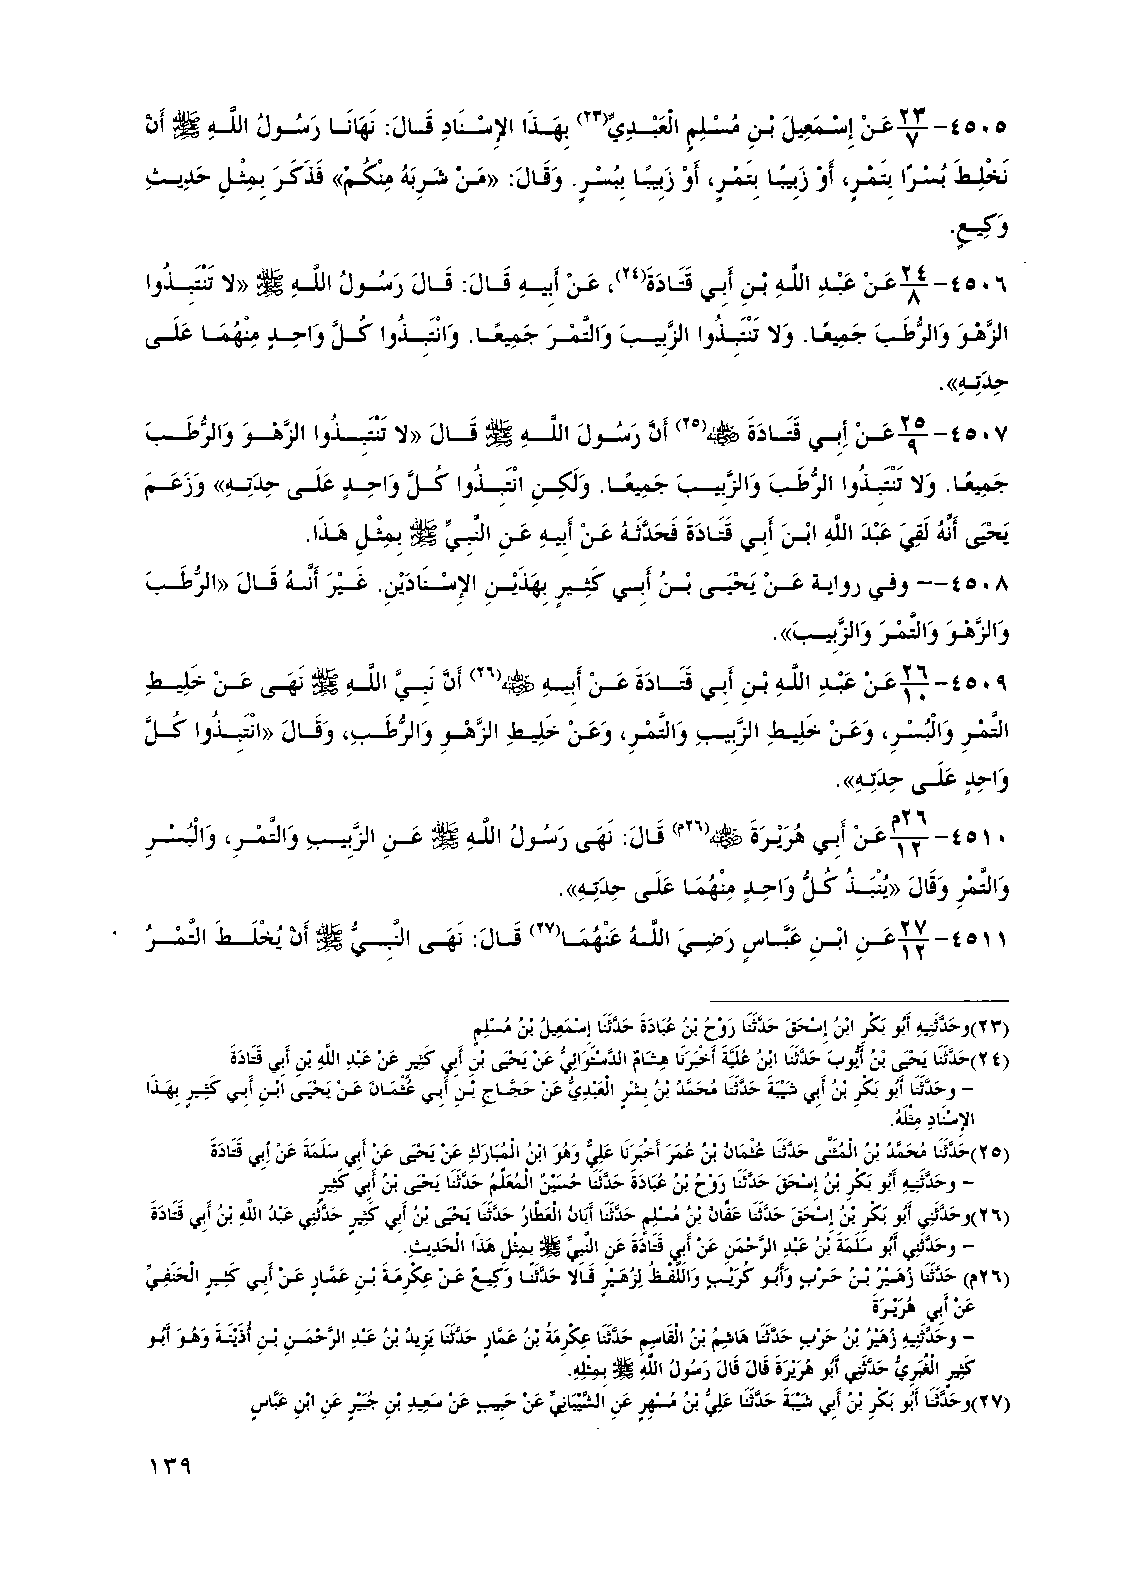 ٤٥٠٥- ٢٣/٧ عَنْ إِسْمَعِيلَ بْنِ مُسْلِمٍ الْعَبْدِيِّ(٢٣) بِهَذَا الإِسْنَادِ قَالَ: نَهَانَا رَسُولُ اللَّهِ ﷺ أَنْ
نَخْلِطَ بُسْرًا بِتَمْرٍ، أَوْ زَبِيبًا بِتَمْرٍ، أَوْ زَبِيبًا بِبُسْرٍ. وَقَالَ: «مَنْ شَرِبَهُ مِنْكُمْ» فَذَكَرَ بِمِثْلِ حَدِيثِ
وَكِيعٍ.
٤٥٠٦- ٢٤/٨ عَنْ عَبْدِ اللَّهِ بْنِ أَبِي قَتَادَةَ(٢٤)، عَنْ أَبِيهِ قَالَ: قَالَ رَسُولُ اللَّهِ ﷺ «لا تَنْتَبِذُوا
الزَّهْوَ وَالرُّطَبَ جَمِيعًا. وَلا تَنْتَبِذُوا الزَّبِيبَ وَالتَّمْرَ جَمِيعًا. وَانْتَبِذُوا كُلَّ وَاحِدٍ مِنْهُمَا عَلَى
حِدَتِهِ».
٤٥٠٧- ٢٥/٩ عَنْ أَبِي قَتَادَةَ ﷺ(٢٥) أَنَّ رَسُولَ اللَّهِ ﷺ قَالَ «لا تَنْتَبِذُوا الزَّهْوَ وَالرُّطَبَ
جَمِيعًا. وَلا تَنْتَبِذُوا الرُّطَبَ وَالزَّبِيبَ جَمِيعًا. وَلَكِنِ انْتَبِذُوا كُلَّ وَاحِدٍ عَلَى حِدَتِهِ» وَزَعَمَ
يَحْيَى أَنَّهُ لَقِيَ عَبْدَ اللَّهِ ابْنَ أَبِي قَتَادَةَ فَحَدَّثَهُ عَنْ أَبِيهِ عَنِ النَّبِيِّ ﷺ بِمِثْلِ هَذَا.
٤٥٠٨-- وفي رواية عَنْ يَحْيَى بْنُ أَبِي كَثِيرٍ بِهَذَيْنِ الإِسْنَادَيْنِ. غَيْرَ أَنَّهُ قَالَ «الرُّطَبَ
وَالزَّهْوَ وَالتَّمْرَ وَالزَّبِيبَ».
٤٥٠٩- ٢٦/١٠ عَنْ عَبْدِ اللَّهِ بْنِ أَبِي قَتَادَةَ عَنْ أَبِيهِ ﷺ(٢٦) أَنَّ نَبِيَّ اللَّهِ ﷺ نَهَى عَنْ خَلِيطِ
التَّمْرِ وَالْبُسْرِ، وَعَنْ خَلِيطِ الزَّبِيبِ وَالتَّمْرِ، وَعَنْ خَلِيطِ الزَّهْوِ وَالرُّطَبِ، وَقَالَ «انْتَبِذُوا كُلَّ
وَاحِدٍ عَلَى حِدَتِهِ».
٤٥١٠- ٢٦م/١٢ عَنْ أَبِي هُرَيْرَةَ ﷺ(٢٦م) قَالَ: نَهَى رَسُولُ اللَّهِ ﷺ عَنِ الزَّبِيبِ وَالتَّمْرِ، وَالْبُسْرِ
وَالتَّمْرِ وَقَالَ «يُنْبَذُ كُلُّ وَاحِدٍ مِنْهُمَا عَلَى حِدَتِهِ».
٤٥١١- ٢٧/١٢ عَنِ ابْنِ عَبَّاسٍ رَضِيَ اللَّهُ عَنْهُمَا(٢٧) قَالَ: نَهَى النَّبِيُّ ﷺ أَنْ يُخْلَطَ التَّمْرُ
(٢٣)وحَدَّثَنِيهِ أَبُو بَكْرِ ابْنُ إِسْحَقَ حَدَّثَنَا رَوْحُ بْنُ عُبَادَةَ حَدَّثَنَا إِسْمَعِيلُ بْنُ مُسْلِمٍ
(٢٤)حَدَّثَنَا يَحْيَى بْنُ أَيُّوبَ حَدَّثَنَا ابْنُ عُلَيَّةَ أَخْبَرَنَا هِشَامٌ الدَّسْتَوَائِيُّ عَنْ يَحْيَى بْنِ أَبِي كَثِيرٍ عَنْ عَبْدِ اللَّهِ بْنِ أَبِي قَتَادَةَ
- وحَدَّثَنَا أَبُو بَكْرِ بْنُ أَبِي شَيْبَةَ حَدَّثَنَا مُحَمَّدُ بْنُ بِشْرٍ الْعَبْدِيُّ عَنْ حَجَّاجِ بْنِ أَبِي عُثْمَانَ عَنْ يَحْيَى ابْنِ أَبِي كَثِيرٍ بِهَذَا
الإِسْنَادِ مِثْلَهُ.
(٢٥)حَدَّثَنَا مُحَمَّدُ بْنُ الْمُثَنَّى حَدَّثَنَا عُثْمَانُ بْنُ عُمَرَ أَخْبَرَنَا عَلِيٌّ وَهُوَ ابْنُ الْمُبَارَكِ عَنْ يَحْيَى عَنْ أَبِي سَلَمَةَ عَنْ أَبِي قَتَادَةَ
- وحَدَّثَنِيهِ أَبُو بَكْرِ بْنُ إِسْحَقَ حَدَّثَنَا رَوْحُ بْنُ عُبَادَةَ حَدَّثَنَا حُسَيْنٌ الْمُعَلِّمُ حَدَّثَنَا يَحْيَى بْنُ أَبِي كَثِيرٍ
(٢٦)وحَدَّثَنِي أَبُو بَكْرِ بْنُ إِسْحَقَ حَدَّثَنَا عَفَّانُ بْنُ مُسْلِمٍ حَدَّثَنَا أَبَانُ الْعَطَّارُ حَدَّثَنَا يَحْيَى بْنُ أَبِي كَثِيرٍ حَدَّثَنِي عَبْدُ اللَّهِ بْنُ أَبِي قَتَادَةَ
- وحَدَّثَنِي أَبُو سَلَمَةَ بْنُ عَبْدِ الرَّحْمَنِ عَنْ أَبِي قَتَادَةَ عَنِ النَّبِيِّ ﷺ بِمِثْلِ هَذَا الْحَدِيثِ.
(٢٦م) حَدَّثَنَا زُهَيْرُ بْنُ حَرْبٍ وَأَبُو كُرَيْبٍ وَاللَّفْظُ لِزُهَيْرٍ قَالا حَدَّثَنَا وَكِيعٌ عَنْ عِكْرِمَةَ بْنِ عَمَّارٍ عَنْ أَبِي كَثِيرٍ الْحَنَفِيِّ
عَنْ أَبِي هُرَيْرَةَ
- وحَدَّثَنِيهِ زُهَيْرُ بْنُ حَرْبٍ حَدَّثَنَا هَاشِمُ بْنُ الْقَاسِمِ حَدَّثَنَا عِكْرِمَةُ بْنُ عَمَّارٍ حَدَّثَنَا يَزِيدُ بْنُ عَبْدِ الرَّحْمَنِ بْنِ أُذَيْنَةَ وَهُوَ أَبُو
كَثِيرٍ الْغُبَرِيُّ حَدَّثَنِي أَبُو هُرَيْرَةَ قَالَ قَالَ رَسُولُ اللَّهِ ﷺ بِمِثْلِهِ.
(٢٧)وحَدَّثَنَا أَبُو بَكْرِ بْنُ أَبِي شَيْبَةَ حَدَّثَنَا عَلِيُّ بْنُ مُسْهِرٍ عَنِ الشَّيْبَانِيِّ عَنْ حَبِيبٍ عَنْ سَعِيدِ بْنِ جُبَيْرٍ عَنِ ابْنِ عَبَّاسٍ
١٣٩